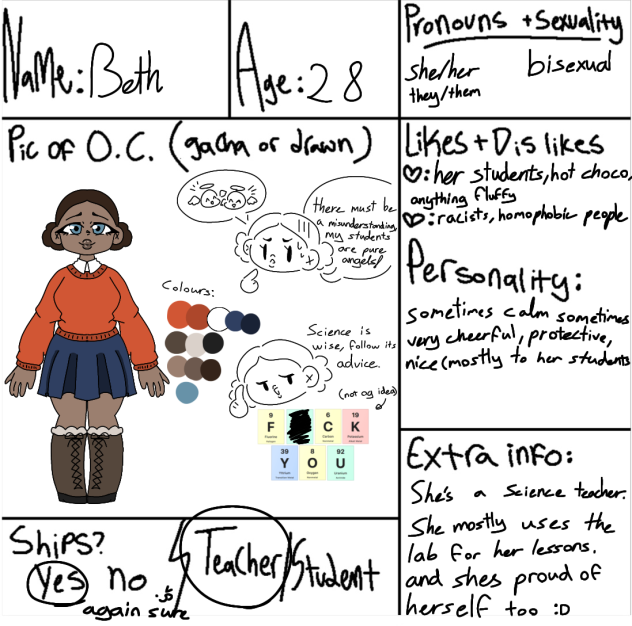 Name: Beth
Age: 28
Pronouns + Sexuality
she/her
they/them
bisexual
Pic of O.C. (gacha or drawn)
there must be
a misunderstanding,
my students
are pure
angels!
Colours:
Science is
wise, follow its
advice.
(not og idea)
9
F
Fluorine
6
C
Carbon
19
K
Potassium
39
Y
Yttrium
8
O
Oxygen
92
U
Uranium
Likes + Dislikes
♡: her students, hot choco,
anything fluffy
♡: racists, homophobic people
Personality:
Sometimes calm sometimes
very cheerful, protective,
nice (mostly to her students
Extra info:
She's a science teacher.
She mostly uses the
lab for her lessons.
and shes proud of
herself too :D
Ships?
yes no
again sure
Teacher/Student